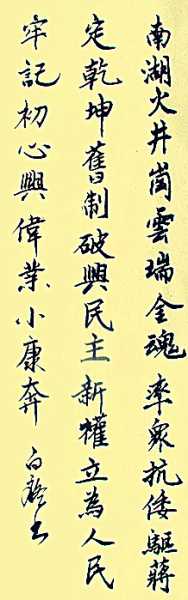 南湖火井崗雲瑞金魂率衆抗倭驅蔣
定乾坤舊制破興民主新權立為人民
牢記初心興偉業小康奔 白